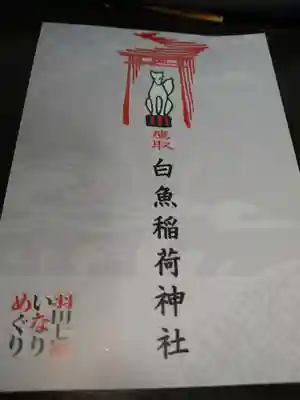 鷹取
白魚稲荷神社
羽田七
いなり
めぐり